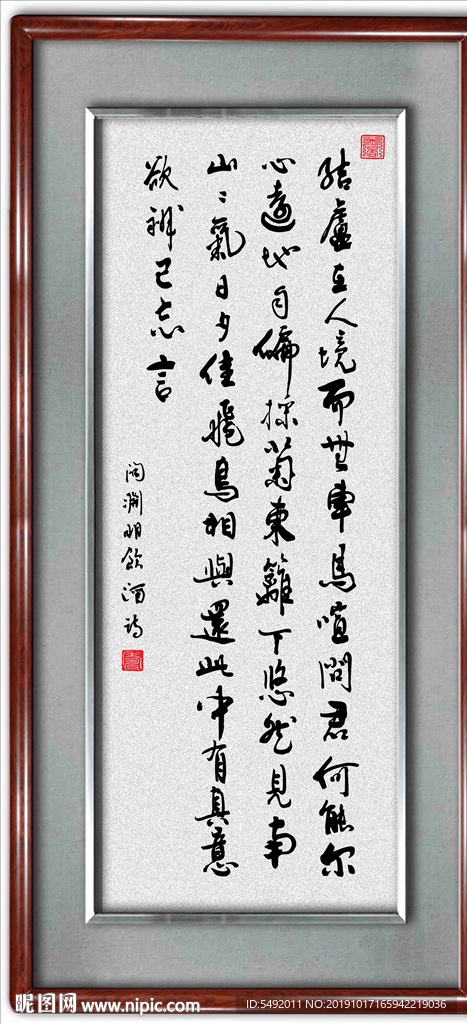 結廬在人境而無車馬喧問君何能尔
心遠地自偏採菊東籬下悠然見南
山〻氣日夕佳飛鳥相與還此中有真意
欲辨已忘言
陶渊明飲酒诗
昵图网 www.nipic.com
ID:5492011 NO:20191017165942219036